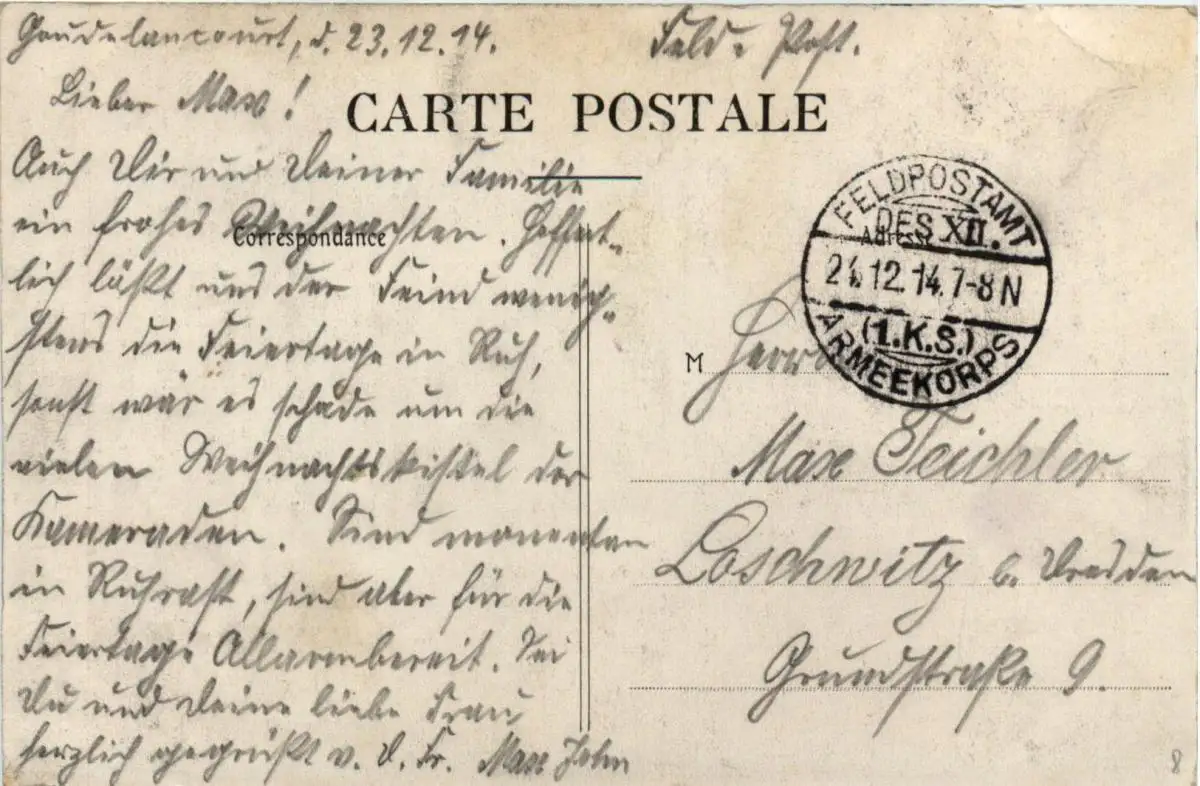 Goudelancourt, d. 23.12.14.
Feld-Post.
Lieber Max!
CARTE POSTALE
Auch Dir und Deiner Familie
ein frohes Weihnachten. Hoffent-
lich läßt uns der Feind wenig-
stens die Feiertage in Ruh,
sonst wär es schade um die
vielen Weihnachtskistel der
Kameraden. Sind momentan
in Ruhrast, sind aber für die
Feiertage Allarmbereit. Sei
Du und Deine liebe Frau
herzlich gegrüßt v. D. Fr. Max John
Correspondance
Adresse
FELDPOSTAMT
DES XII.
24.12.14.7-8N
(1.K.S.)
ARMEEKORPS
M
Herrn
Max Teichler
Loschwitz b. Dresden
Grundstraße 9.
8